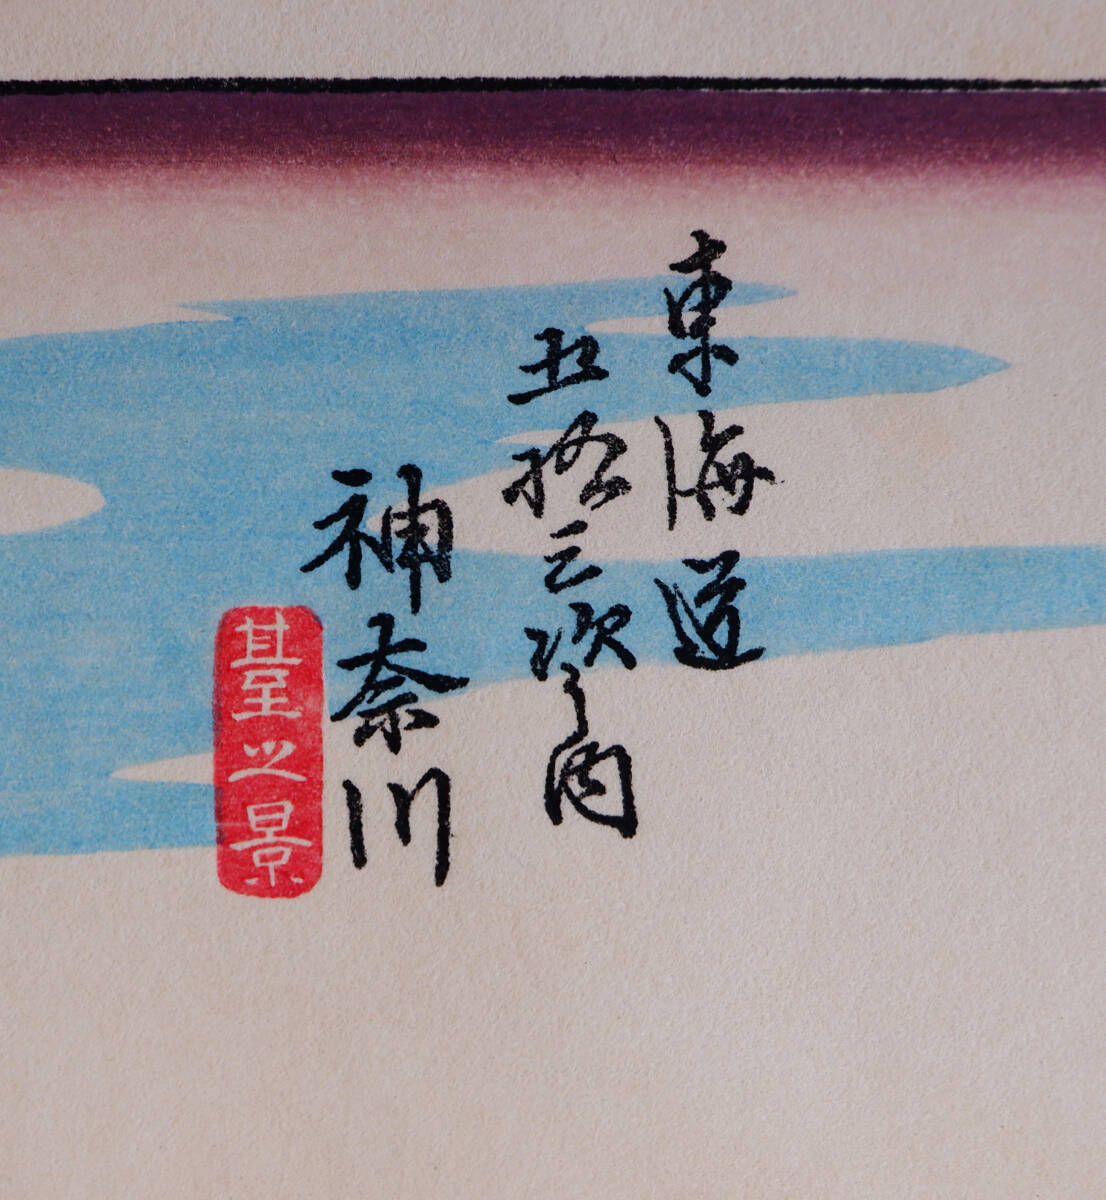 東海道
五拾三次之内
神奈川
臺之景